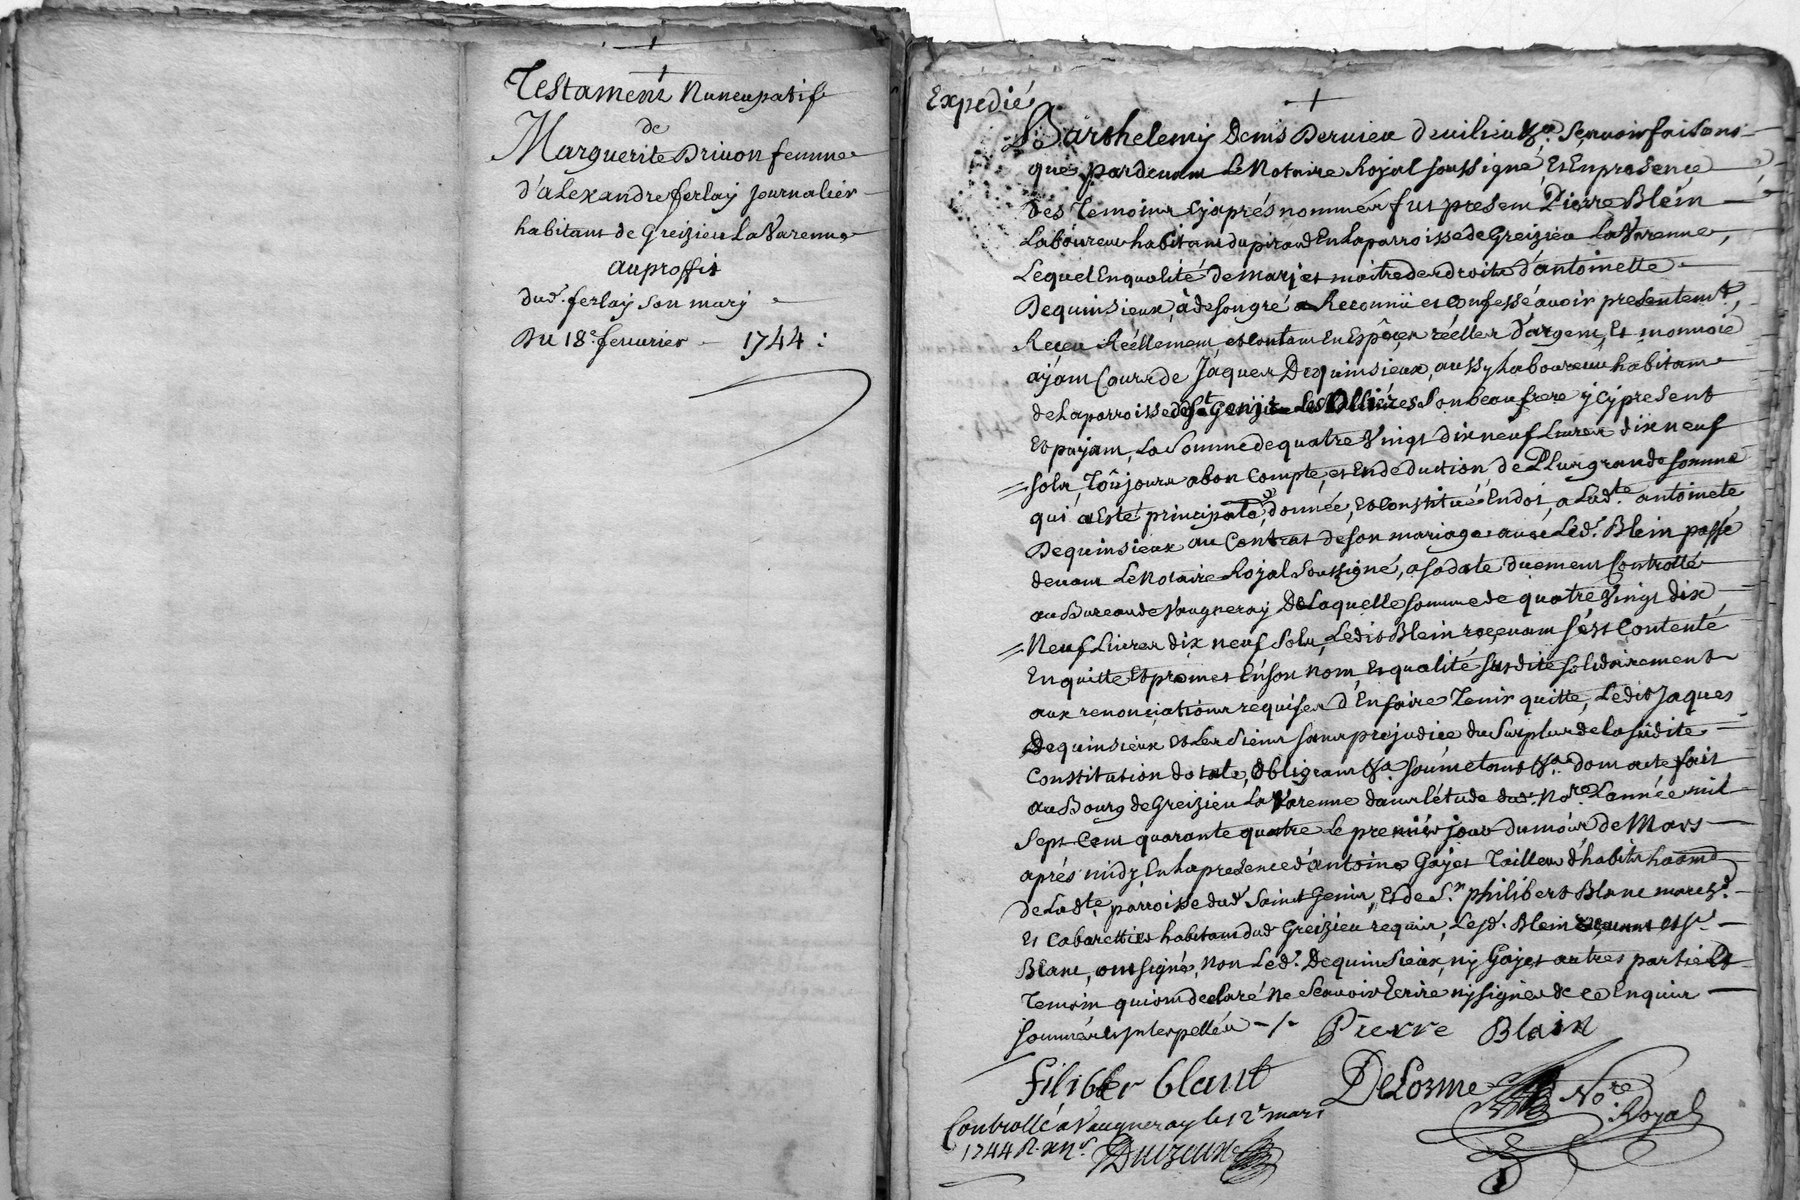 Testament Nuncupatif
de
Marguerite Drivon femme
d'alexandre ferlay Journalier
habitant de Greizieu LaVarenne
au proffit
dud. ferlay son mary
Du 18e fevurier 1744 :
Expedié
Barthelemy Denis Dervieu de vilieu &a Sçavoir faisons
que pardevant Le Notaire Royal soussigné, Et En presence
des Temoins cy aprés nommés fut present Pierre Blein
Laboureur habitant du pirad En La parroisse de Greizieu LaVarenne,
Lequel En qualité de mary et maitre des droits d'antoinette
Dequinsieux, à de son gré a Reconnü et confessé avoir presentemt,
Receu Réellement, et contant En Espéces réelles d'argent, Et monnoie
aÿant Cours de Jaques Dequinsieux, aussy Laboureur habitant
de La parroisse de St Genis Les Ollieres son beaufrere ycy present
Et payant, La Somme de quatre Vingt dix neuf Livres dix neuf
Sols, Toûjours a bon Compte, et En deduction, de Plus grande somme
qui a Esté principale donnée, Et constitué En dot, a Ladte antoinete
Dequinsieux au Contrat de son mariage avec Led. Blein passé
devant Le Notaire Royal soussigné, a sa date duement Controllé
au Bureau de Vaugneray De Laquelle somme de quatre Vingt dix
Neuf Livres dix neuf Sols, Ledit Blein reçevant s'est Contenté
En quitte Et promet En son nom, Et qualité susdite solidairement
aux renonciations requises d'En faire Tenir quitte, Ledit Jaques
Dequinsieux et Les Siens sans prejudice du Surplus de la sudite
Constitution dotale, obligeant &a soûmetant &a dont acte fait
au Bourg de Greizieu La Varenne dans l'étude dud. Nore L'année mil
Sept Cent quarante quatre Le premier jour du mois de Mars
aprés midy, En La presence d'antoine Gayet Tailleur d'habits habitant
de Ladte parroisse dud. Saint Genis, Et de Sr. philibert Blanc march.d
Et Cabarettier habitant dud Greizieu requis, Lesd. Blein recevant et Sr.
Blanc, ont signé, Non Led. Dequinsieux, ny Gayet autres partie Et
Temoin qui ont declaré Ne Sçavoir Ecrire ny signer de ce Enquis
sommés et ynterpellés
Pierre Blain
filibber blant
DeLorme Nore Royal
Controllé a Vaugneray le 12e mars
1744 R.